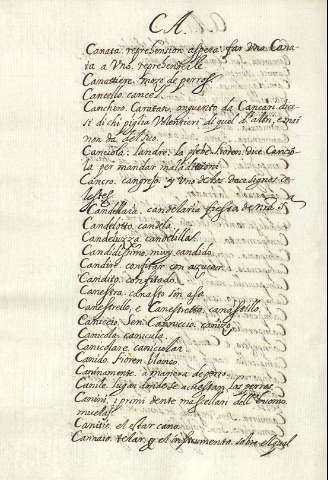 CA.
Canata. reprehension aspera. far una Cana-
ta a Uno. reprehendelle
Canattiere. moço de perros.
Cancello. cancel
Canchero. Caratan, onguento da Cancari dice-
si di chi piglia volentieri di quel d'altri, e mai
non da del suo
Canciola. landre. la peste. Fioren. due Cancio-
la per mandar maladitioni
Cancro. cangrejo. y uno de los doce signos ce-
lestes
Candellara. candelaria fiesta de nra. Sª
Candelotto, candela
Candeluzza. candelilla.
Candidissimo. muy candido.
Candire. confitar con açucar.
Candito. confitado.
Canestra. canasto sin asa
Canestrello, e Canestretto. canastillo.
Caniccio, Sen. Cannuccio, cañiço
Canicola. canicula.
Canicolare. canicular.
Canido. Fioren. blanco.
Caninamente. a manera de perro.
Canile. lugar donde se acuestan los perros.
Canini. i primi dente mascellari dell'huomo.
muelas
Canitie. el estar cano.
Cannaio. telar. y el instrumento sobre el qual